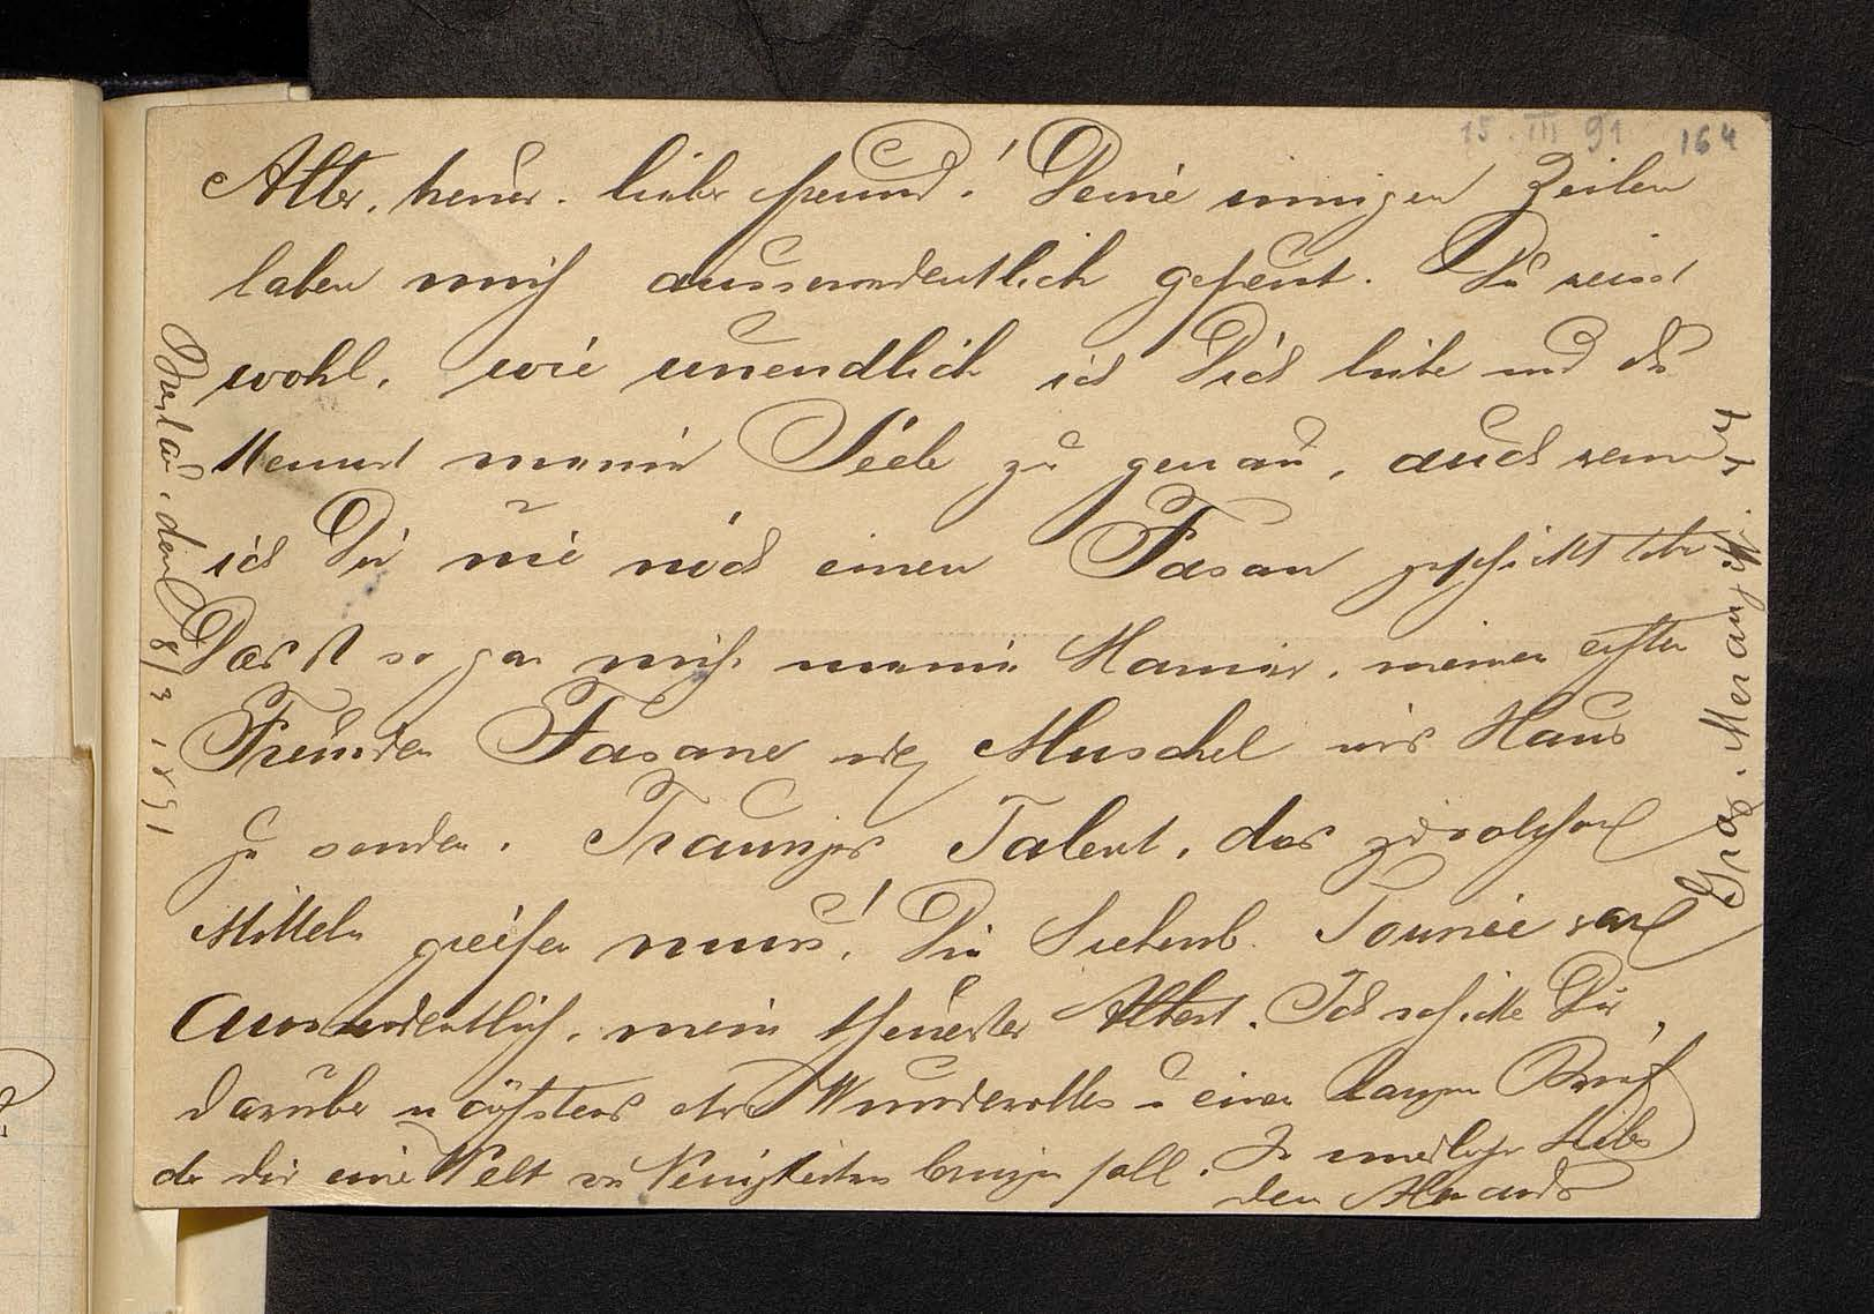 15. III 91 164
Alter, treuer, lieber Freund! Deine innigen Zeilen
haben mich ausserordentlich gefreut. Du weisst
wohl, wie unendlich ich Dich liebe und Du
kennst meine Seele zu genau, auch wenn
ich Dir nie noch einen Fasan geschickt habe
Das ist so gar nicht meine Manier, meinen ersten
Freunden Fasane oder Muschel ins Haus
zu senden. Trauriges Talent, das zu solchen
Mitteln greifen muss! Die Siebenb. Tournée war
ausserordentlich, mein theuerster Albert. Ich schicke Dir
darüber nächstens etwas Wundervolles u einen langen Brief
der dir eine Welt von Neuigkeiten bringen soll. In unendlicher Liebe
Dein
Breslau, den 8/3 1891
Graz. Merang